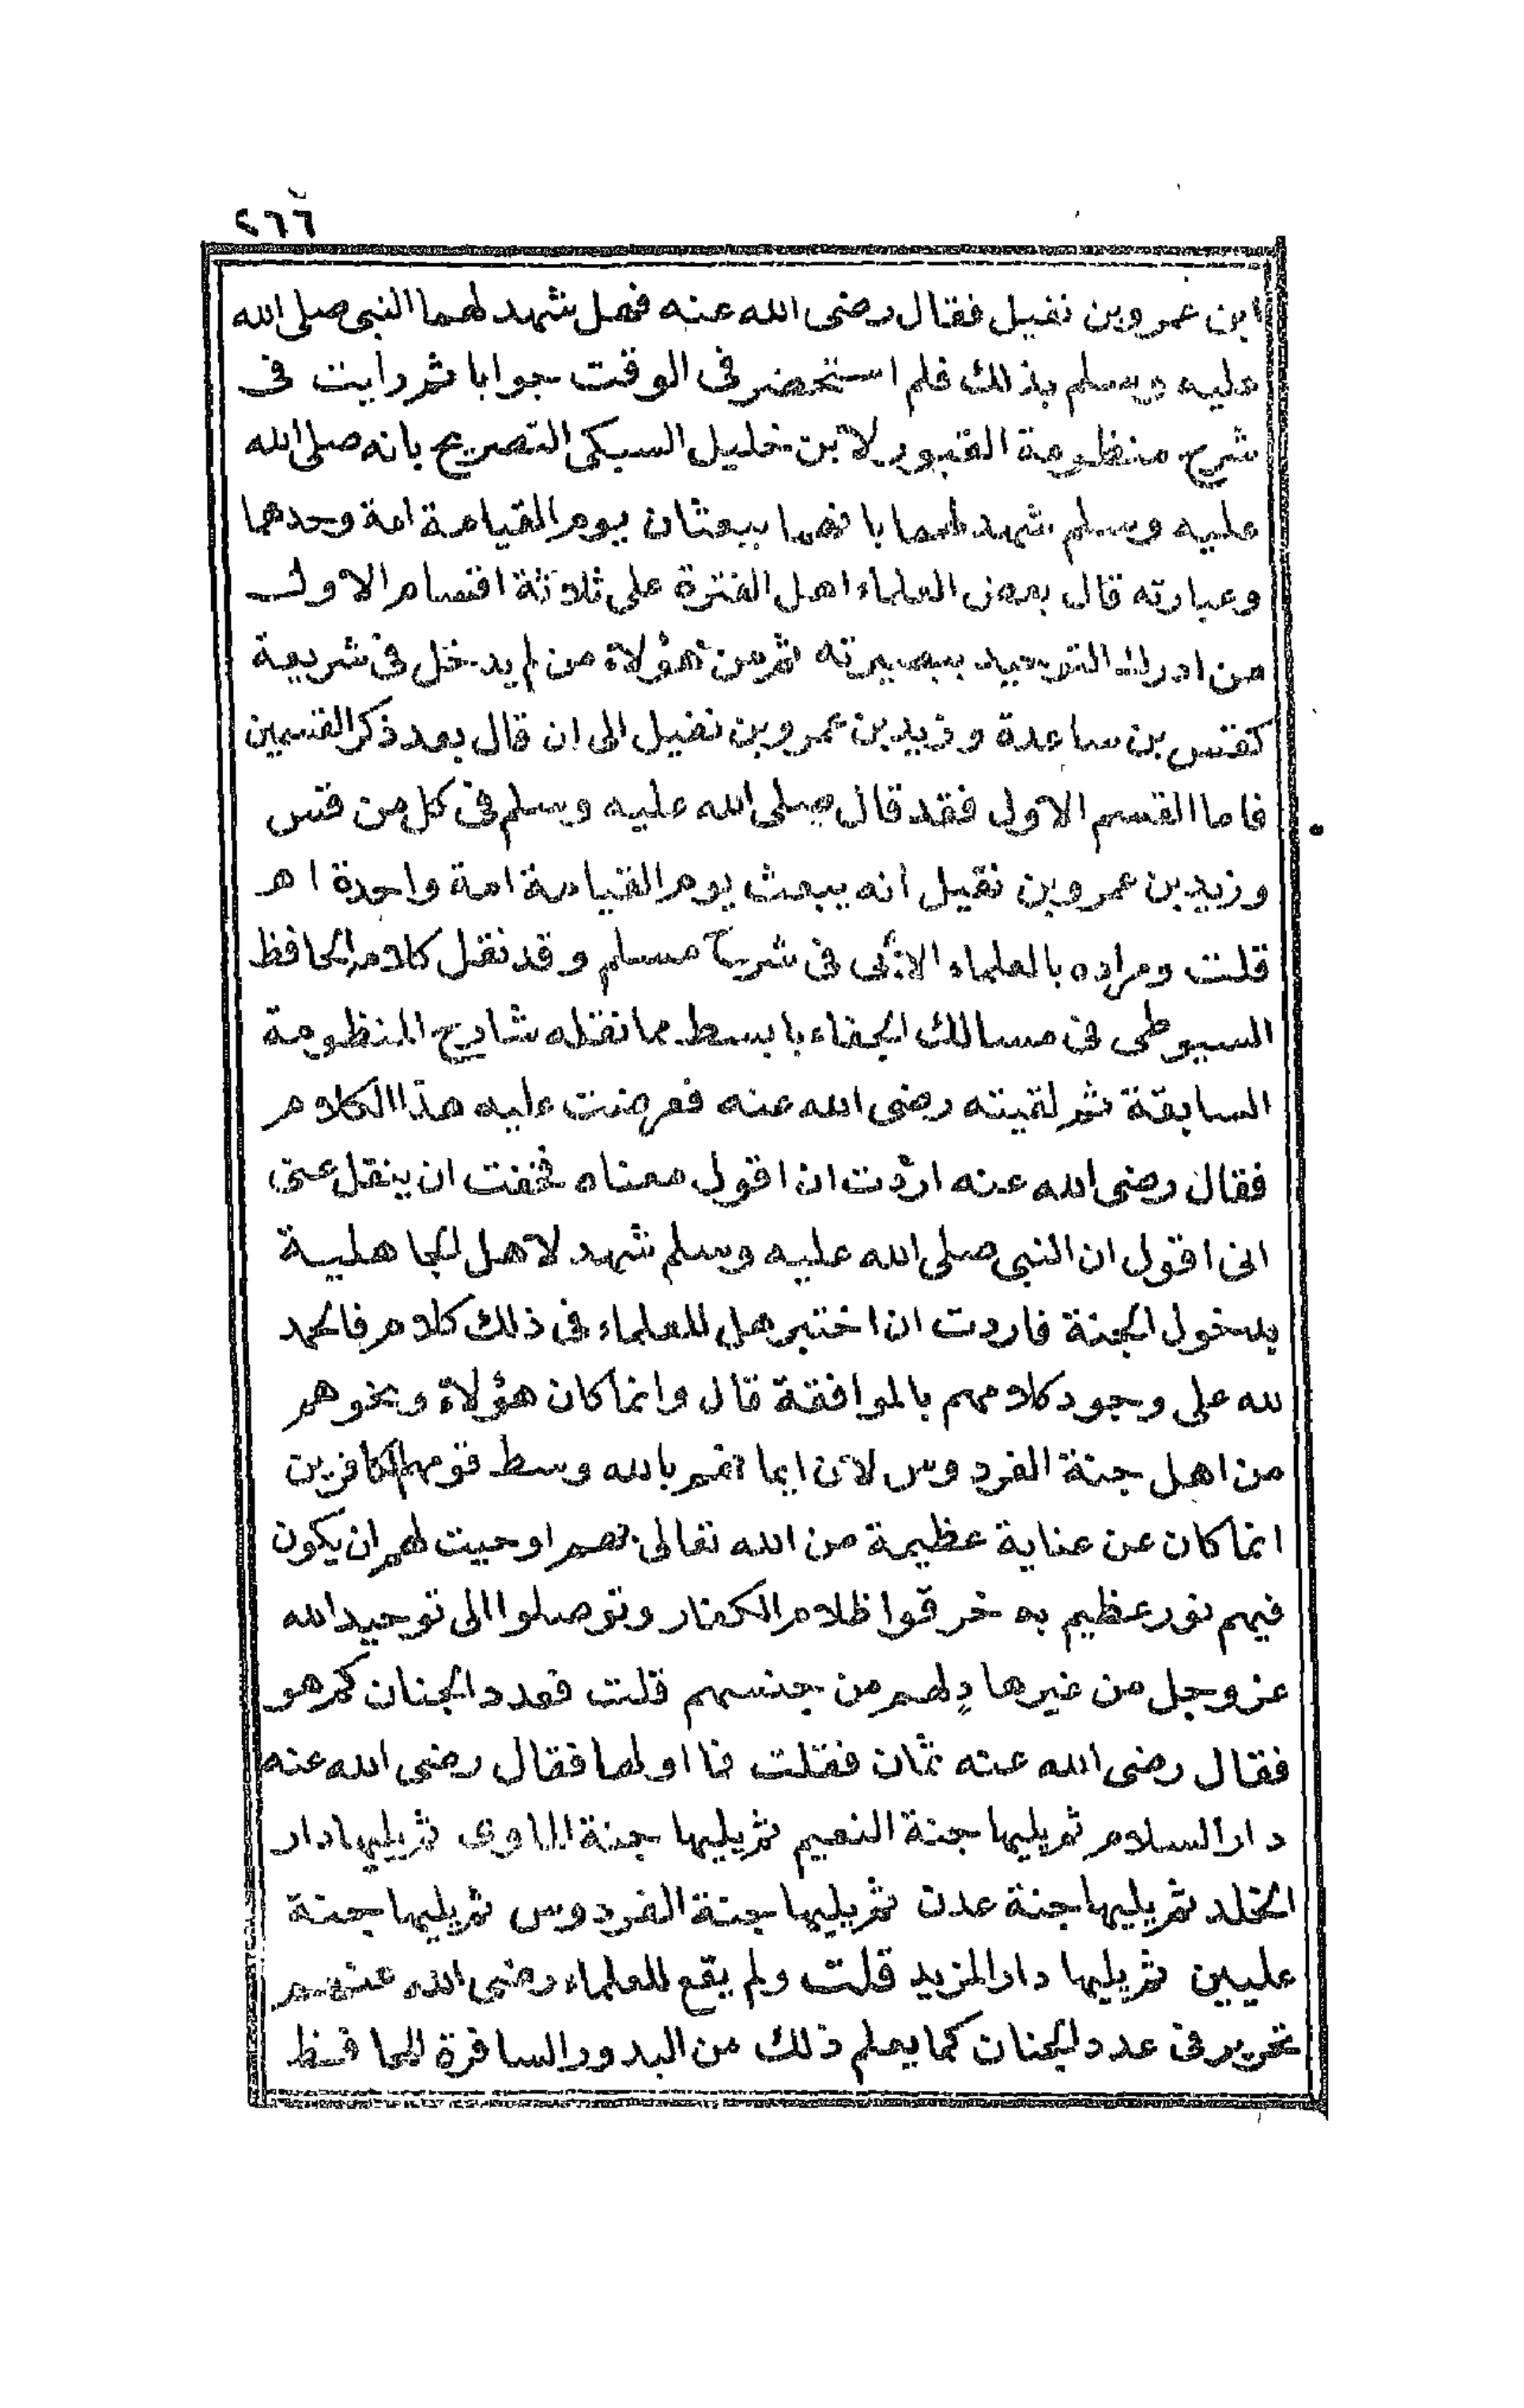 ٢٦٦
ابن عمرو بن نفيل فقال رضى الله عنه فهل شهد لهما النبى صلى الله
عليه وسلم بذلك فلم استحضر فى الوقت جوابا ثم رايت فى
شرح منظومة القبور لابن خليل السبكى التصريح بانه صلى الله
عليه وسلم شهد لهما بانهما يبعثان يوم القيامة امة وحدهما
وعبارته قال بعض العلماء اهل الفترة على ثلاثة اقسام الاول
من ادرك التوحيد ببصيرته ثم من هؤلاء من لم يدخل فى شريعة
كقس بن ساعدة وزيد بن عمرو بن نفيل الى ان قال بعد ذكر القسمين
فاما القسم الاول فقد قال صلى الله عليه وسلم فى كل من قس
وزيد بن عمرو بن نفيل انه يبعث يوم القيامة امة واحدة اهـ
قلت ومراده بالعلماء الأبى فى شرح مسلم وقد نقل كلامه الحافظ
السيوطى فى مسالك الحنفاء بابسط مما نقله شارح المنظومة
السابقة ثم لقيته رضى الله عنه فعرضت عليه هذا الكلام
فقال رضى الله عنه اردت ان اقول معناه فخفت ان ينقل عنى
انى اقول ان النبى صلى الله عليه وسلم شهد لاهل الجاهلية
بدخول الجنة فاردت ان اختبر هل للعلماء فى ذلك كلام فالحمد
لله على وجود كلامهم بالموافقة قال وانما كان هؤلاء ونحوهم
من اهل جنة الفردوس لان ايمانهم بالله وسط قومهم الكافرين
انما كان عن عناية عظيمة من الله تعالى بهم اوحيت لهم ان يكون
فيهم نور عظيم به خرقوا ظلام الكفار وتوصلوا الى توحيد الله
عز وجل من غير هاد لهم من جنسهم قلت فعدد الجنان كم هو
فقال رضى الله عنه ثمان فقلت فما اولها فقال رضى الله عنه
دار السلام ثم يليها جنة النعيم ثم يليها جنة الماوى ثم يليها دار
الخلد ثم يليها جنة عدن ثم يليها جنة الفردوس ثم يليها جنة
عليين ثم يليها دار المزيد قلت ولم يقع للعلماء رضى الله عنهم
تحرير فى عدد الجنان كما يعلم ذلك من البدور السافرة للحافظ